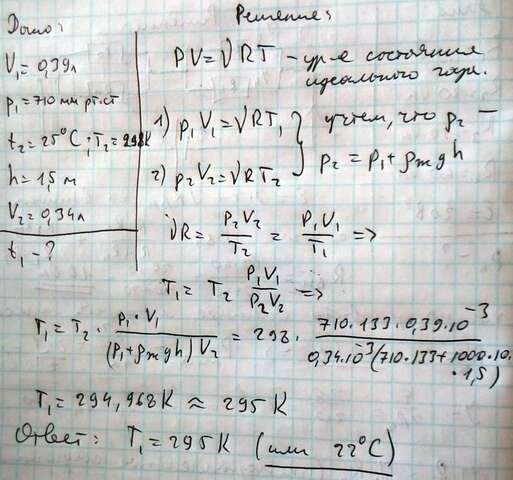 Дано:
V₁ = 0,39 л
p₁ = 710 мм рт.ст
t₂ = 25°C; T₂ = 298K
h = 1,5 м
V₂ = 0,34 л
t₁ - ?
Решение:
PV = νRT - ур-е состояния
идеального газа.
1) p₁V₁ = νRT₁
2) p₂V₂ = νRT₂
} учтем, что p₂ —
p₂ = p₁ + ρж g h
νR = P₂V₂/T₂ = P₁V₁/T₁ =>
T₁ = T₂ P₁V₁/P₂V₂ =>
T₁ = T₂ · P₁·V₁/(P₁+ρж g h)V₂ = 298 · 710·133·0,39·10⁻³/0,34·10⁻³(710·133+1000·10·1,5)
T₁ = 294,968K ≈ 295K
Ответ: T₁ = 295K (или 22°C)